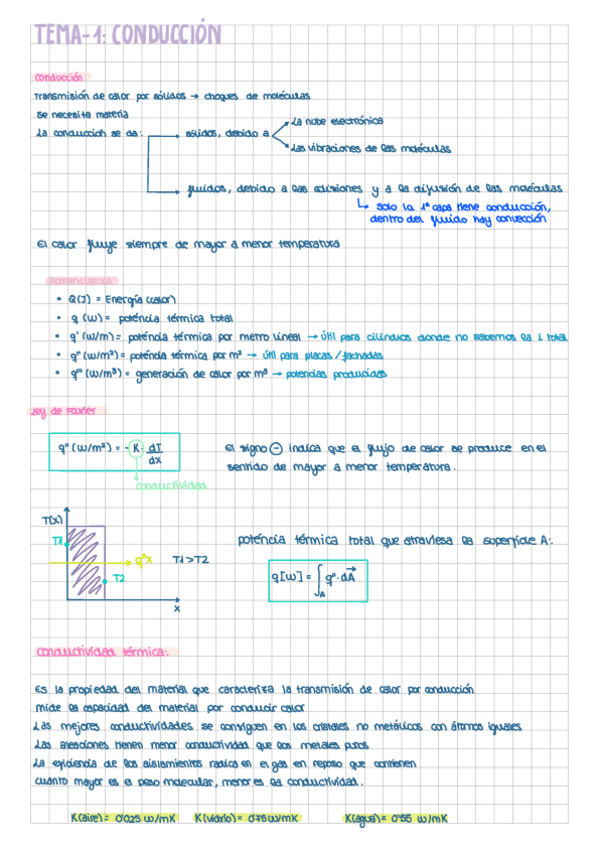 TEMA-1: CONDUCCIÓN
Conducción
Transmisión de calor por sólidos → choques de moléculas
Se necesita materia
La conducción se da: sólidos, debido a
La nube electrónica
Las vibraciones de las moléculas
fluidos, debido a las colisiones y a la difusión de las moléculas
↳ solo la 1ª capa tiene conducción,
dentro del fluido hay convección
El calor fluye siempre de mayor a menor temperatura
Nomenclatura
• Q(J) = Energía (calor)
• q (W) = poténcia térmica total
• q' (W/m) = poténcia térmica por metro lineal → útil para cilindros donde no sabemos la L total
• q'' (W/m²) = poténcia térmica por m² → útil para placas / fachadas
• q''' (W/m³) = generación de calor por m³ → potencias producidas
Ley de Fourier
q'' (W/m²) = - K · dT/dx
conductividad
El signo ⊖ indica que el flujo de calor se produce en el
sentido de mayor a menor temperatura.
T(x)
T1
q''x
T1 > T2
T2
x
poténcia térmica total que atraviesa la superficie A:
q[W] = ∫A q'' · dA⃗
Conductividad térmica:
Es la propiedad del material que caracteriza la transmisión de calor por conducción
mide la capacidad del material por conducir calor
Las mejores conductividades se consiguen en los cristales no metálicos con átomos iguales
Las aleaciones tienen menor conductividad que los metales puros
La eficiencia de los aislamientos radica en el gas en reposo que contienen
cuanto mayor es el peso molecular, menor es la conductividad.
K(aire) = 0'025 W/mK K(vidrio) = 0'75 W/mK K(agua) = 0'55 W/mK